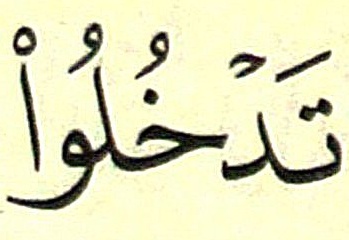 تَدْخُلُواْ